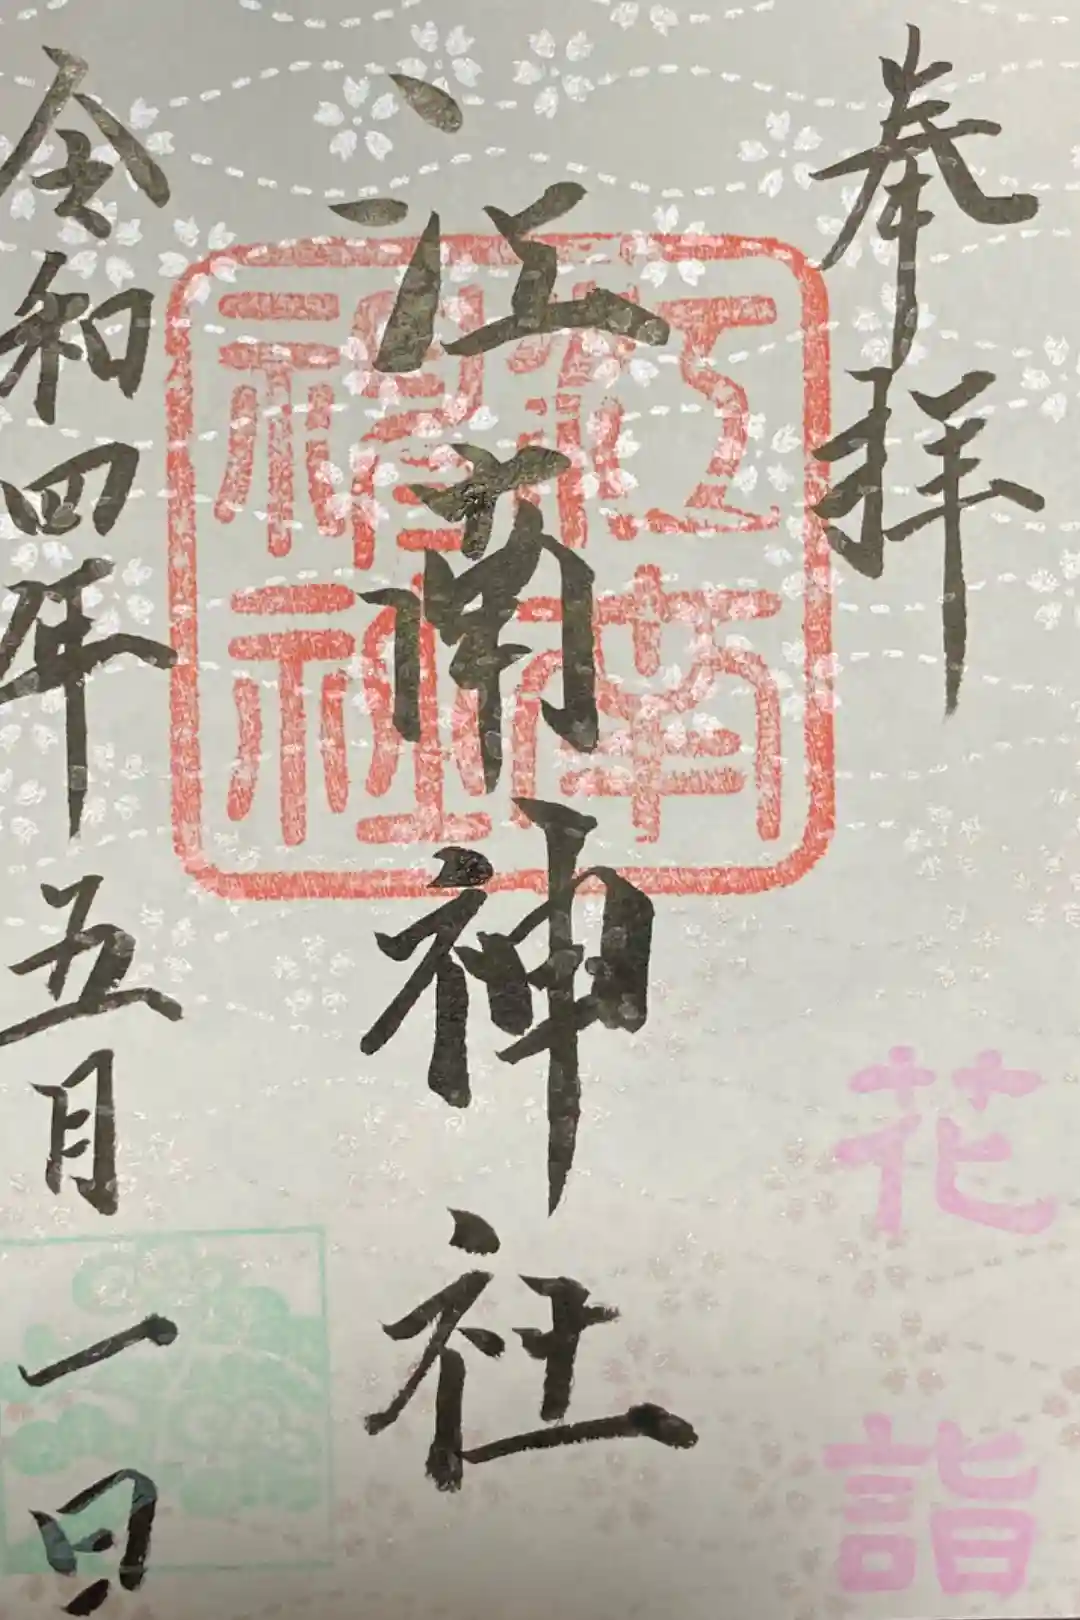 奉拝
花詣
江南神社
江南
神社
令和四年五月一日